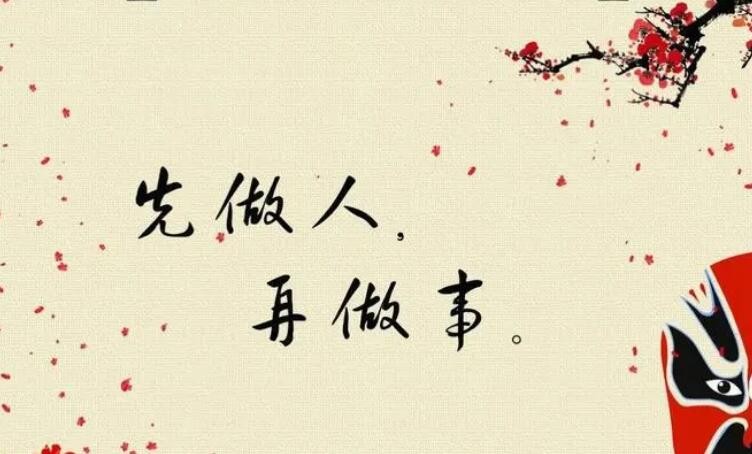 先做人，
再做事。